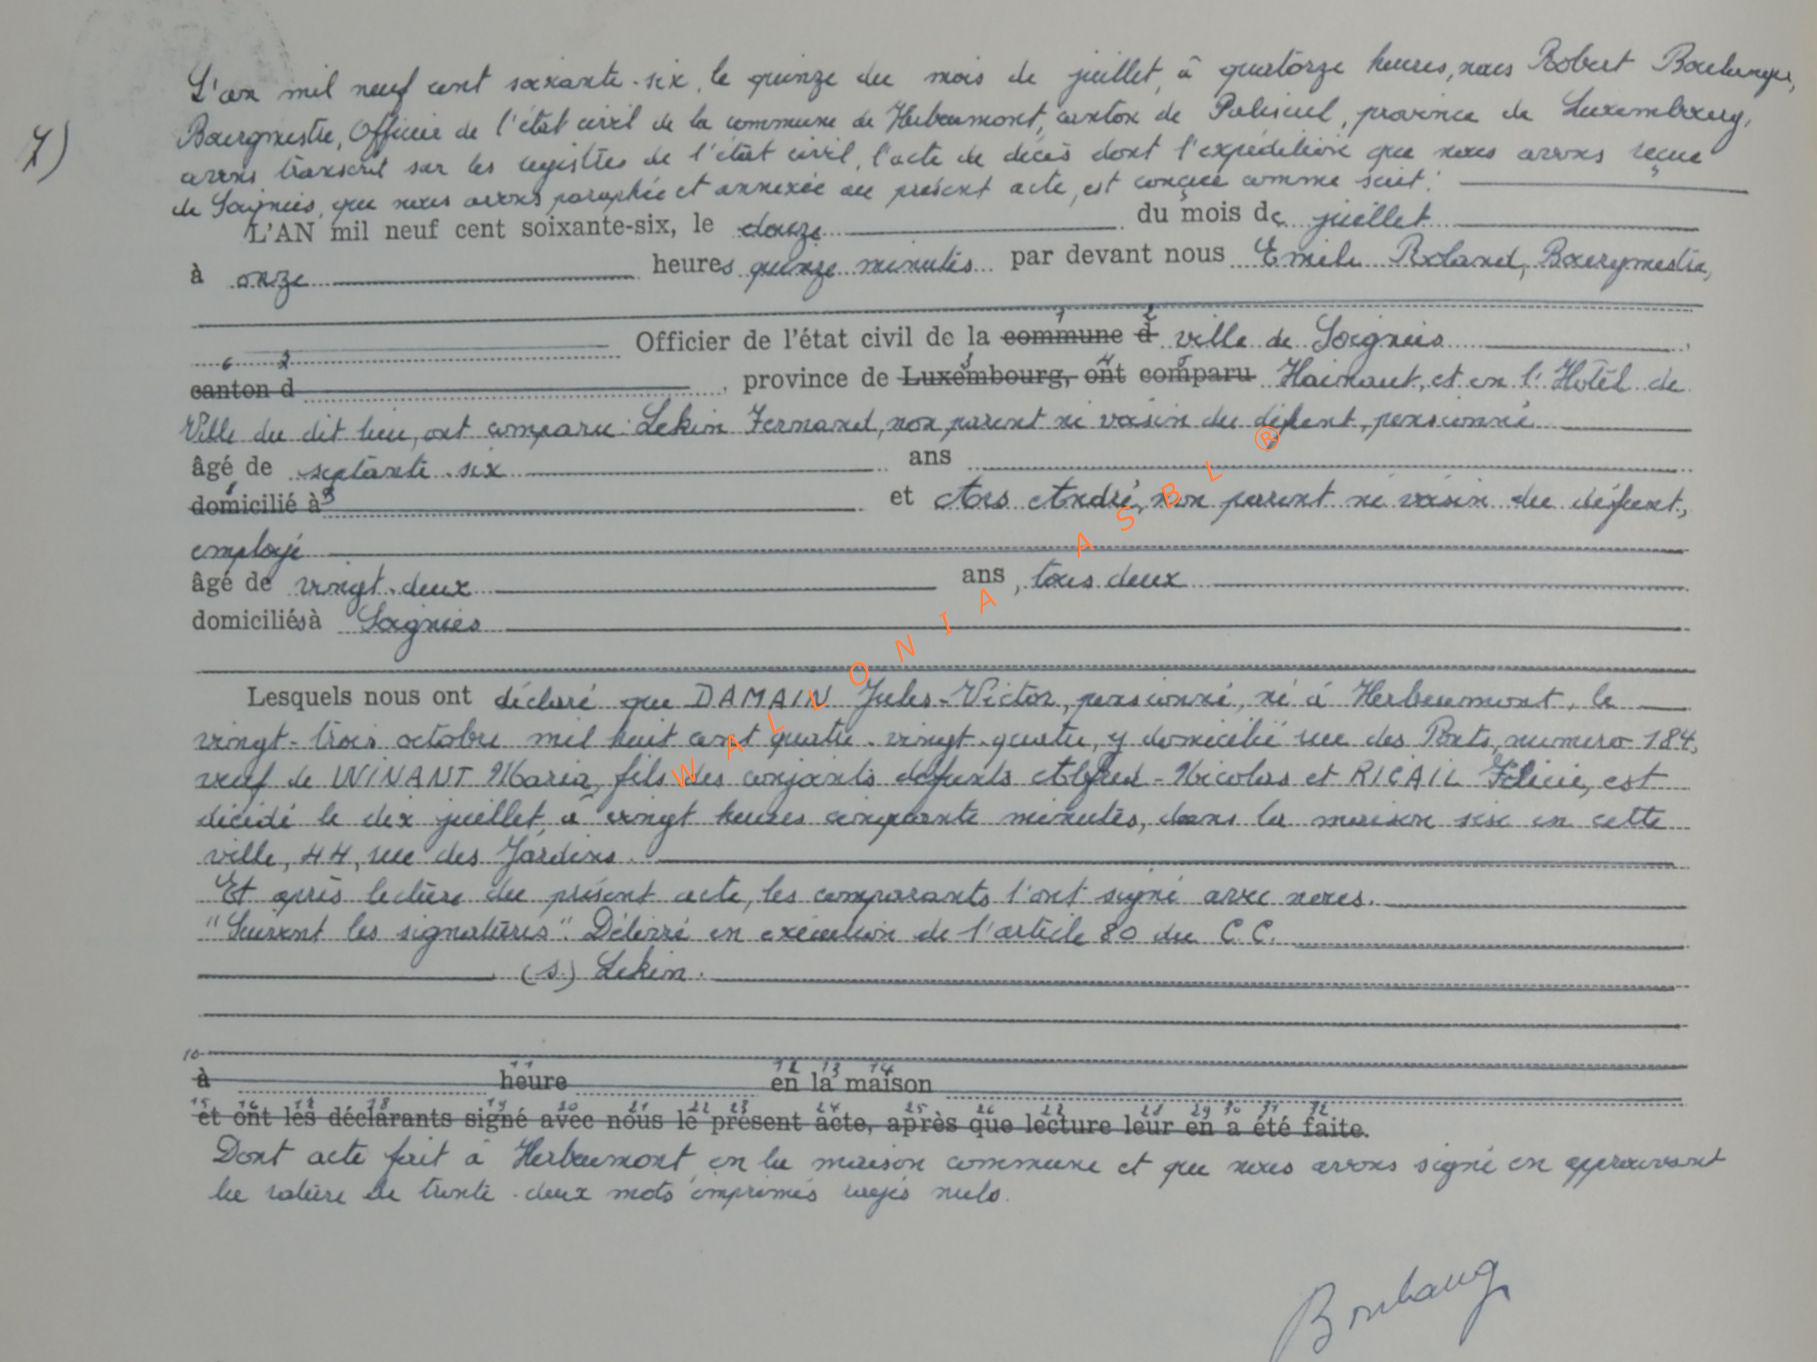 L'an mil neuf cent soixante-six, le quinze du mois de juillet, à quatorze heures, nous Robert Boulanger,
7)
Bourgmestre, Officier de l'état civil de la commune de Herbeumont, canton de Paliseul, province de Luxembourg,
avons transcrit sur les registres de l'état civil, l'acte de décès dont l'expédition que nous avons reçue
de Soignies, que nous avons paraphée et annexée au présent acte, est conçue comme suit:
L'AN mil neuf cent soixante-six, le douze du mois de juillet
à onze heures quinze minutes par devant nous Emile Roland, Bourgmestre,
Officier de l'état civil de la commune d ville de Soignies
canton d province de Luxembourg, ont comparu Hainaut, et en l'Hôtel de
Ville du dit lieu, ont comparu: Lekin Fernand, non parent ni voisin du défunt, pensionné
âgé de septante-six ans
domicilié à et Ars André, non parent ni voisin du défunt,
employé
âgé de vingt-deux ans, tous deux
domiciliés à Soignies
Lesquels nous ont déclaré que DAMAIN Jules-Victor, pensionné, né à Herbeumont, le
vingt-trois octobre mil huit cent quatre-vingt-quatre, y domicilié rue des Ponts, numéro 184,
veuf de WINANT Maria, fils des conjoints défunts Alfred-Nicolas et RICAIL Félicie, est
décédé le dix juillet, à vingt heures cinquante minutes, dans la maison sise en cette
ville, 44, rue des Jardins.
Et après lecture du présent acte, les comparants l'ont signé avec nous.
"Suivent les signatures". Délivré en exécution de l'article 80 du C.C.
(s.) Lekin.
à heure en la maison
et ont les déclarants signé avec nous le présent acte, après que lecture leur en a été faite.
Dont acte fait à Herbeumont en la maison commune et que nous avons signé en approuvant
la rature de trente-deux mots imprimés rayés nuls.
Boulang
WALLONIA ASBL ®